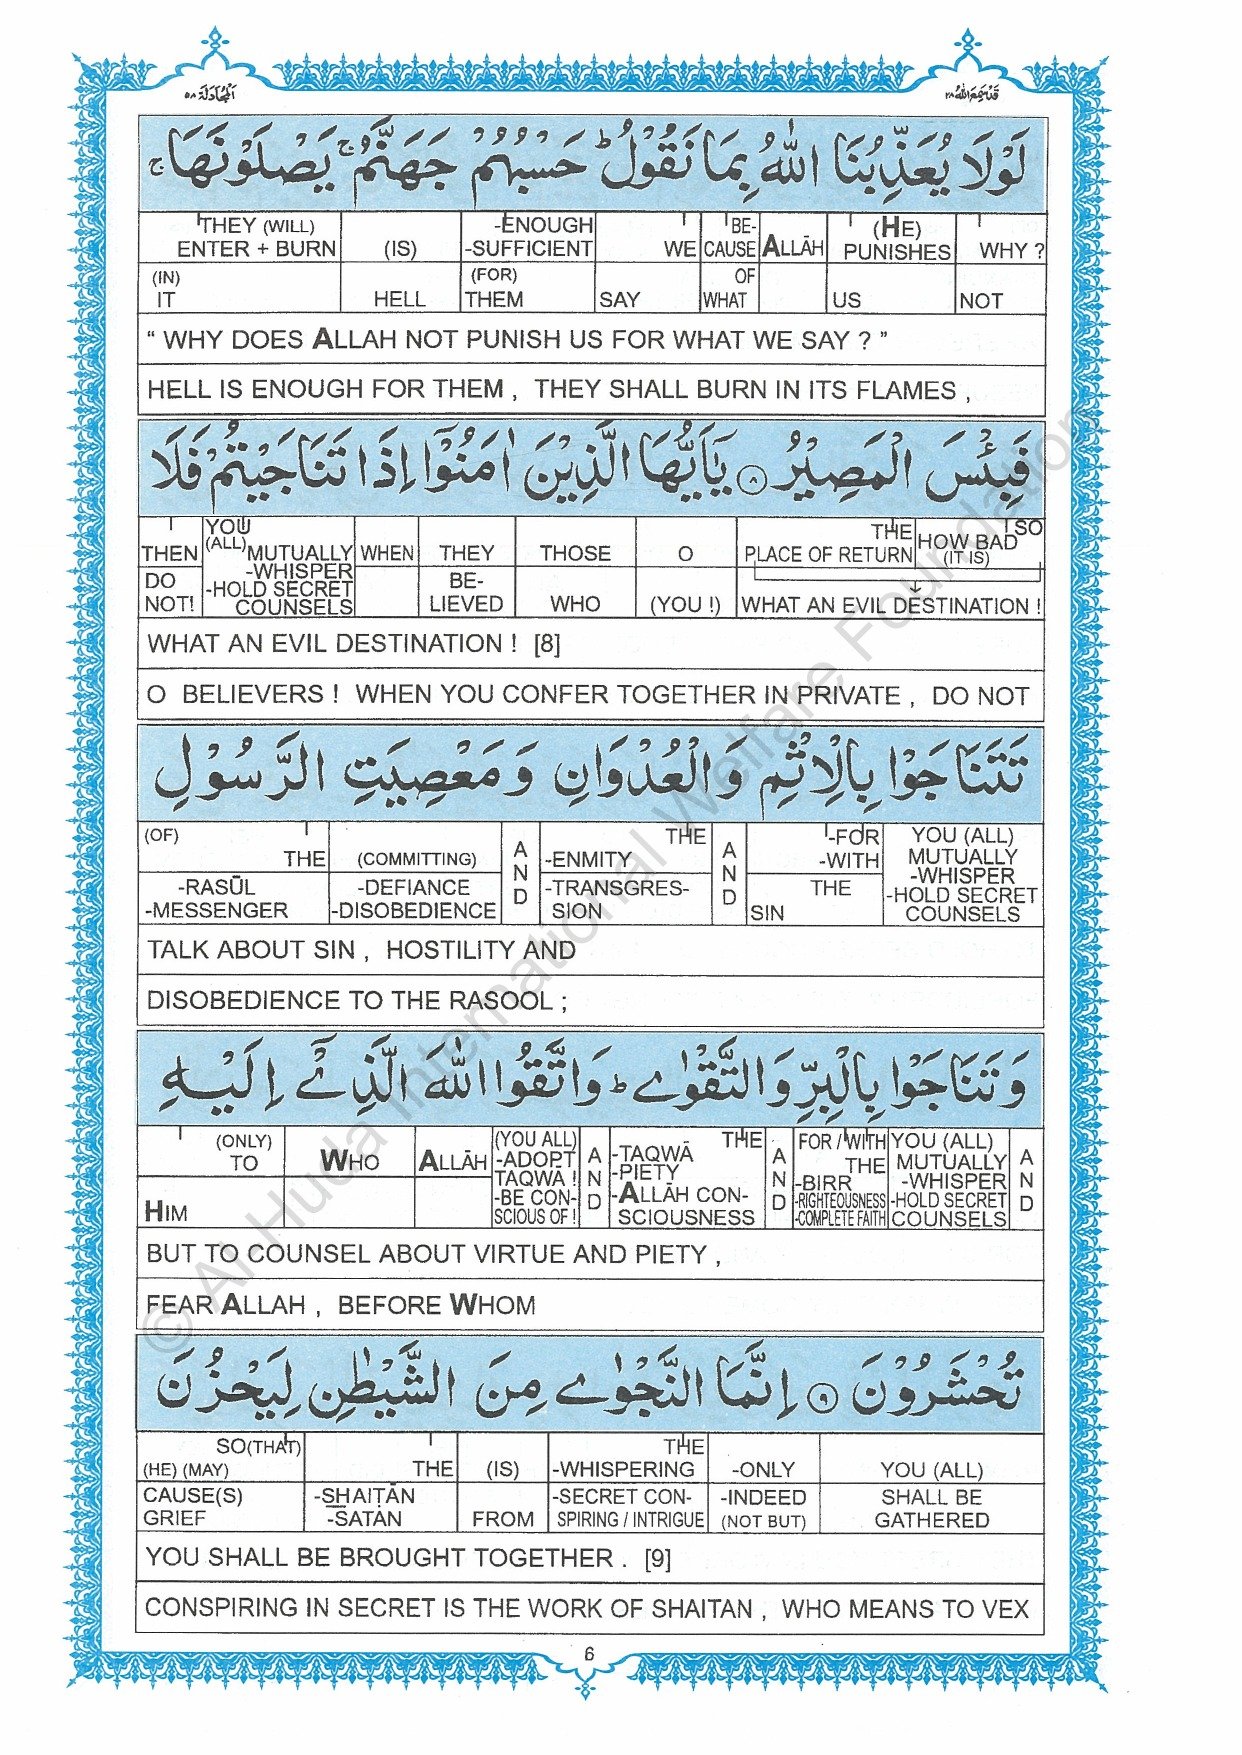 المجادلة ٥٨
قد سمع الله ٢٨
لَوْلَا يُعَذِّبُنَا اللّٰهُ بِمَا نَقُوْلُ ؕ حَسْبُهُمْ جَهَنَّمُ ۚ يَصْلَوْنَهَا ۚ
THEY (WILL) ENTER + BURN | (IS) | -ENOUGH -SUFFICIENT | WE | BE-CAUSE | ALLĀH | (HE) PUNISHES | WHY ?
(IN) IT | HELL | (FOR) THEM | SAY | OF WHAT | US | NOT
“ WHY DOES ALLAH NOT PUNISH US FOR WHAT WE SAY ? ”
HELL IS ENOUGH FOR THEM , THEY SHALL BURN IN ITS FLAMES ,
فَبِئْسَ الْمَصِيْرُ ۝٨ يٰۤاَيُّهَا الَّذِيْنَ اٰمَنُوْۤا اِذَا تَنَاجَيْتُمْ فَلَا
THEN | YOU (ALL) MUTUALLY | WHEN | THEY | THOSE | O | THE PLACE OF RETURN | SO HOW BAD (IT IS)
DO NOT! | -WHISPER -HOLD SECRET COUNSELS | BE-LIEVED | WHO | (YOU !) | WHAT AN EVIL DESTINATION !
WHAT AN EVIL DESTINATION ! [8]
O BELIEVERS ! WHEN YOU CONFER TOGETHER IN PRIVATE , DO NOT
تَتَنَاجَوْا بِالْاِثْمِ وَالْعُدْوَانِ وَمَعْصِيَتِ الرَّسُوْلِ
(OF) THE | (COMMITTING) | AND | THE -ENMITY | AND | -FOR -WITH | YOU (ALL) MUTUALLY
-RASŪL -MESSENGER | -DEFIANCE -DISOBEDIENCE | -TRANSGRES-SION | THE SIN | -WHISPER -HOLD SECRET COUNSELS
TALK ABOUT SIN , HOSTILITY AND
DISOBEDIENCE TO THE RASOOL ;
وَتَنَاجَوْا بِالْبِرِّ وَالتَّقْوٰى ؕ وَاتَّقُوا اللّٰهَ الَّذِيْۤ اِلَيْهِ
(ONLY) TO | WHO | ALLĀH | (YOU ALL) -ADOPT TAQWA ! -BE CON-SCIOUS OF ! | AND | THE -TAQWĀ -PIETY -ALLĀH CON-SCIOUSNESS | AND | FOR / WITH THE -BIRR -RIGHTEOUSNESS -COMPLETE FAITH | YOU (ALL) MUTUALLY -WHISPER -HOLD SECRET COUNSELS | AND
HIM
BUT TO COUNSEL ABOUT VIRTUE AND PIETY ,
FEAR ALLAH , BEFORE WHOM
تُحْشَرُوْنَ ۝٩ اِنَّمَا النَّجْوٰى مِنَ الشَّيْطٰنِ لِيَحْزُنَ
SO(THAT) (HE) (MAY) | THE | (IS) | THE -WHISPERING | -ONLY | YOU (ALL)
CAUSE(S) GRIEF | -SHAIṬĀN -SATAN | FROM | -SECRET CON-SPIRING / INTRIGUE | -INDEED (NOT BUT) | SHALL BE GATHERED
YOU SHALL BE BROUGHT TOGETHER . [9]
CONSPIRING IN SECRET IS THE WORK OF SHAITAN , WHO MEANS TO VEX
6
© Al-Huda International Welfare Foundation